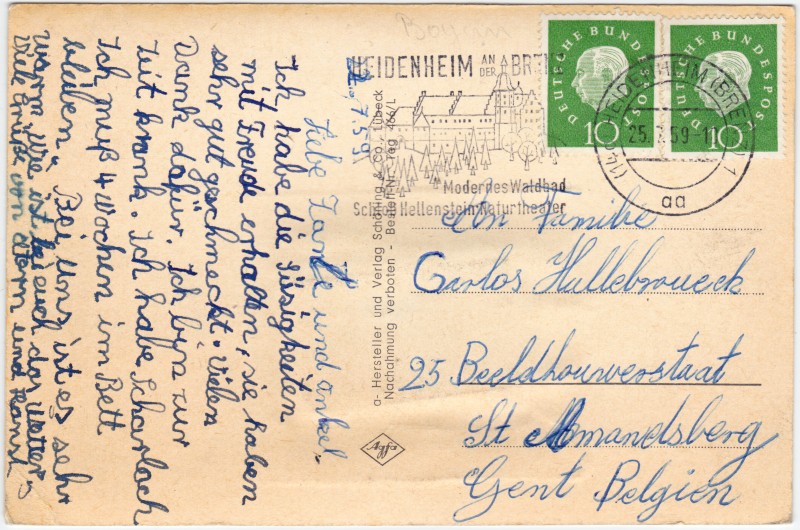 Bayern
HEIDENHEIM AN DER BRENZ
Modernes Waldbad
Schloß Hellenstein Naturtheater
DEUTSCHE BUNDESPOST
10
DEUTSCHE BUNDESPOST
10
(14a) HEIDENHEIM (BRENZ) 1
25.7.59-11
aa
2. 7. 59
Liebe Tante und Onkel.
Ich habe die Süsigkeiten
mit Freude erhalten, sie haben
sehr gut geschmeckt. Vielen
Dank dafür. Ich bin zur
Zeit krank. Ich habe Scharlach
Ich muß 4 Wochen im Bett
bleiben. Bei uns ist es sehr
warm wie ist bei euch das Wetter
Viele Grüße von Eltern und Hansi
a- Hersteller und Verlag Schöning & Co., Lübeck
Nachahmung verboten - Bestell-Nr. 466/L
Agfa
An Familie
Carlos Hallebrouck
25 Beeldhouwerstaat
St Amandsberg
Gent Belgien